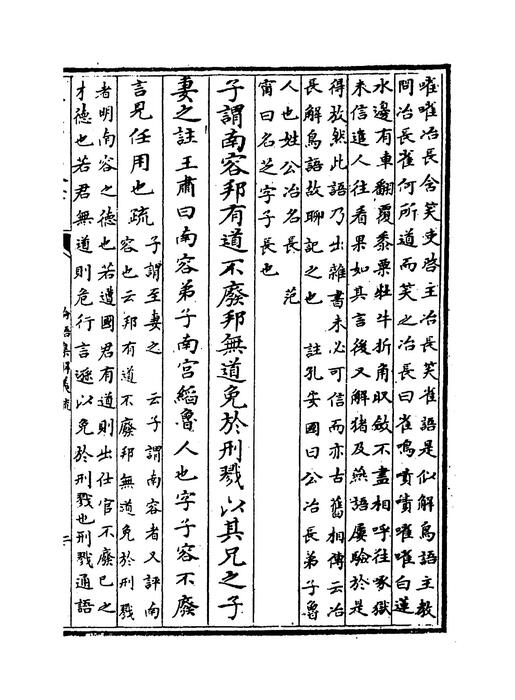 嘖嘖冶長含笑吏啓主冶長笑雀語是似解鳥語主教
問冶長雀何所道而笑之冶長曰雀鳴嘖嘖嗺嗺白蓮
水邊有車翻覆黍粟牡牛折角收斂不盡相呼往啄獄
未信遣人往看果如其言後又解猪及燕語屢驗於是
得放然此語乃出雜書未必可信而亦古舊相傳云冶
長解鳥語故聊記之也　註孔安國曰公冶長弟子魯
人也姓公冶名長　范
甯曰名芝字子長也
子謂南容邦有道不廢邦無道免於刑戮以其兄之子
妻之註王肅曰南容弟子南宮縚魯人也字子容不廢
言見任用也疏
子謂至妻之　云子謂南容者又評南
容也云邦有道不廢邦無道免於刑戮
者明南容之德也若遭國君有道則出仕官不廢已之
才德也若君無道則危行言遜以免於刑戮也刑戮通語
論語集解義疏
二